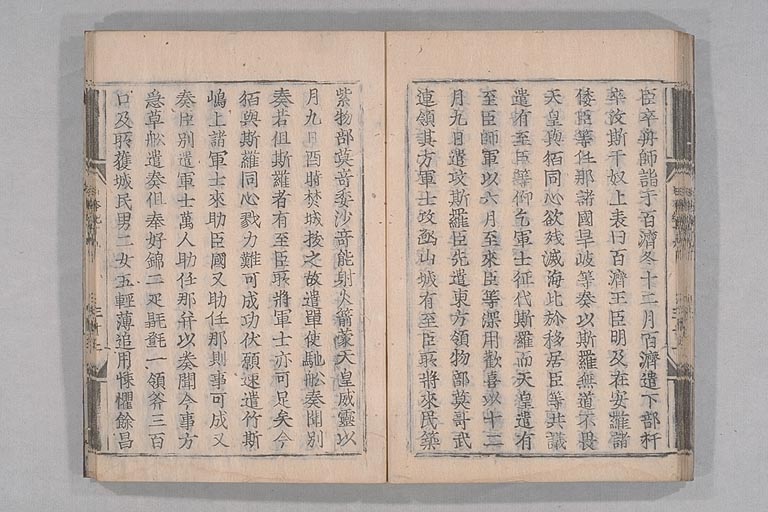 臣卒舟師詣于百濟冬十二月百濟遣下部杆
率汶斯干奴上表曰百濟王臣明及在安羅諸
倭臣等任那諸國旱岐等奏以斯羅無道不畏
天皇與狛同心欲殘滅海北弥移居臣等共議
遣有至臣等仰乞軍士征伐斯羅而天皇遣有
至臣帥軍以六月至來臣等深用歡喜以十二
月九日遣攻斯羅臣先遣東方領物部莫哥武
連領其方軍士攻函山城有至臣所將來民筑
紫物部莫奇委沙奇能射火箭蒙天皇威靈以
月九日酉時焚城拔之故遣單使馳舩奏聞別
奏若但斯羅者有至臣所將軍士亦可足矣今
狛與斯羅同心戮力難可成功伏願速遣竹斯
嶋上諸軍士來助臣國又助任那則事可成又
奏臣別遣軍士萬人助任那并以奏聞今事方
急單舩遣奏但奉好錦二疋毾㲪一領斧三百
口及所獲城民男二女五輕薄追用悚懼餘昌